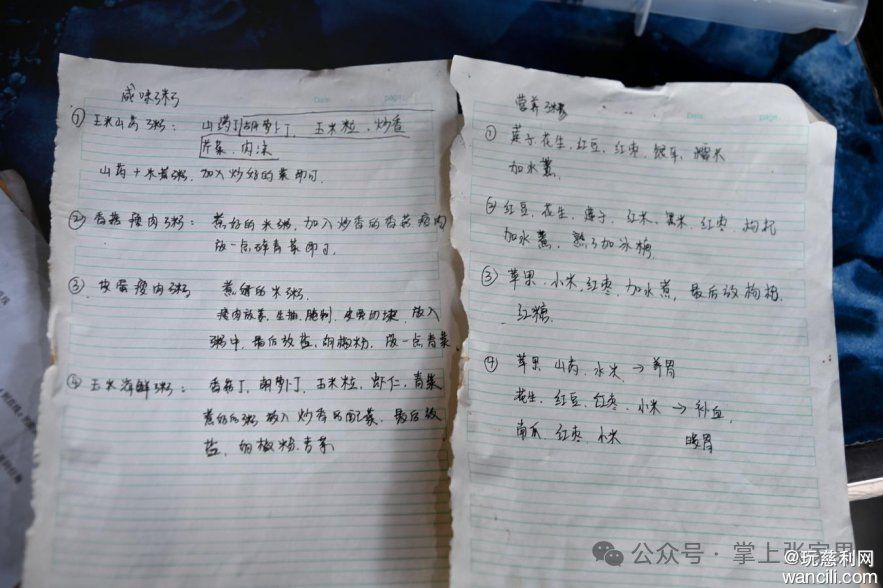 咸味粥
Date
page
① 玉米山药粥: 山药丁胡萝卜丁、玉米粒、炒香
芹菜、肉沫
山药+米煮粥、加入炒好的菜即可.
② 香菇瘦肉粥: 煮好的米粥,加入炒香的香菇瘦肉
放一点碎青菜即可.
③ 皮蛋瘦肉粥 煮好的米粥.
瘦肉放姜、生抽、腌制、皮蛋切块 放入
粥中、最后放盐、胡椒粉、放一点青菜
④ 玉米海鲜粥: 香菇丁、胡萝卜丁、玉米粒、虾仁、青菜
煮好的粥 放入 炒香的配菜、最后放
盐、胡椒粉.青菜
营养粥
Date
page
① 莲子 花生、红豆、红枣、银耳、糯米
加水煮.
② 红豆、花生、莲子、红米、黑米、红枣、枸杞
加水煮、熟了加冰糖.
③ 苹果、小米、红枣、加水煮,最后放枸杞、
红糖.
④ 苹果 山药、小米 → 养胃
花生、红豆、红枣、小米 → 补血
南瓜、红枣、小米 暖胃
公众号·掌上张家界
@玩慈利网
wancili.com